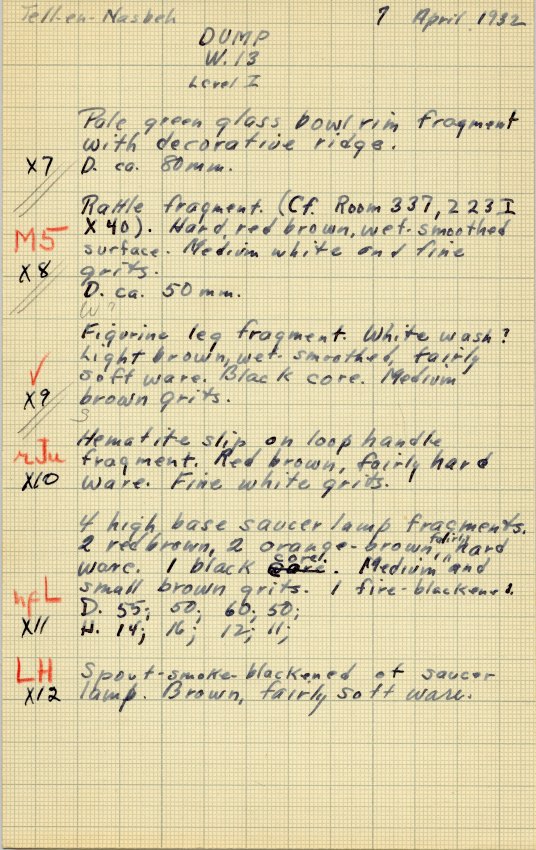 Tell-en-Nasbeh 7 April 1932
DUMP
W.13
Level I
Pale green glass bowl rim fragment
with decorative ridge.
X7 D. ca. 80 mm.
Rattle fragment. (Cf. Room 337, 223 I
X 40). Hard, red brown, wet-smoothed
M5 surface. Medium white and fine
X8 grits.
D. ca. 50 mm.
W?
Figurine leg fragment. White wash?
Light brown, wet-smoothed, fairly
✓ soft ware. Black core. Medium
X9 brown grits.
S
Hematite slip on loop handle
rJu fragment. Red brown, fairly hard
X10 ware. Fine white grits.
4 high base saucer lamp fragments.
2 red brown, 2 orange-brown, fairly hard
ware. 1 black core. Medium and
small brown grits. 1 fire-blackened.
hfL D. 55; 50; 60; 50;
X11 H. 14; 16; 12; 11;
LH Spout-smoke-blackened of saucer
X12 lamp. Brown, fairly soft ware.